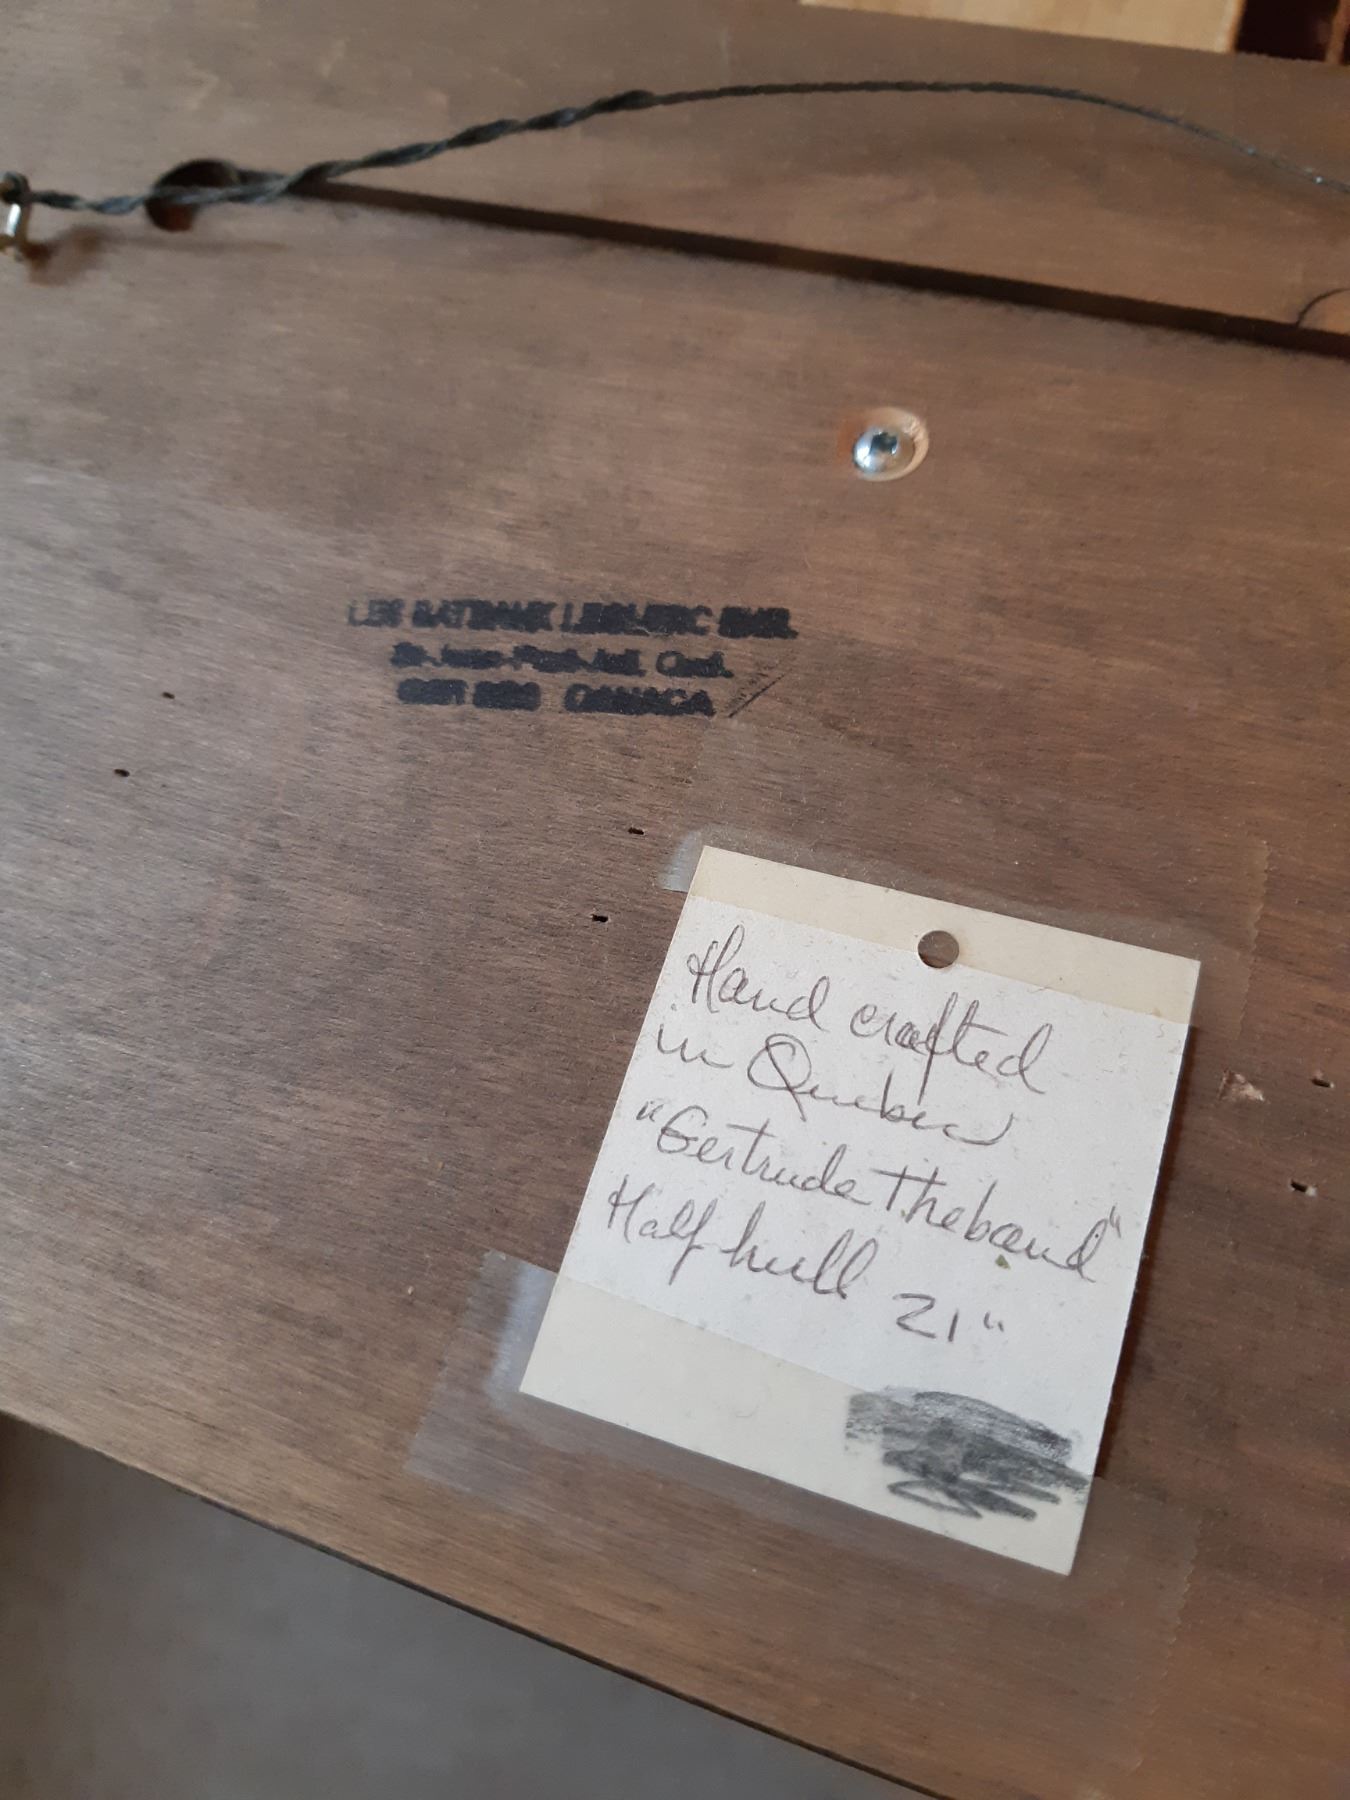 LES BATEAUX LECLERC ENR.
St-Jean-Port-Joli, Qué.
CANADA
Hand crafted
in Quebec
"Gertrude Thebaud"
Half hull 21"